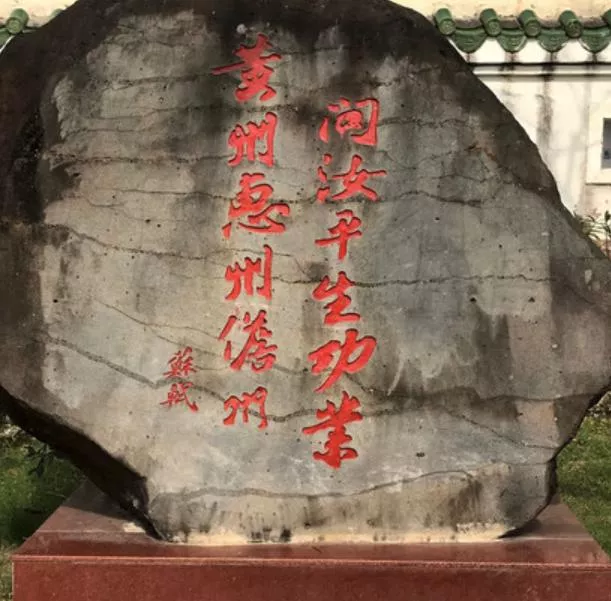 問汝平生功業
黄州惠州儋州
蘇軾